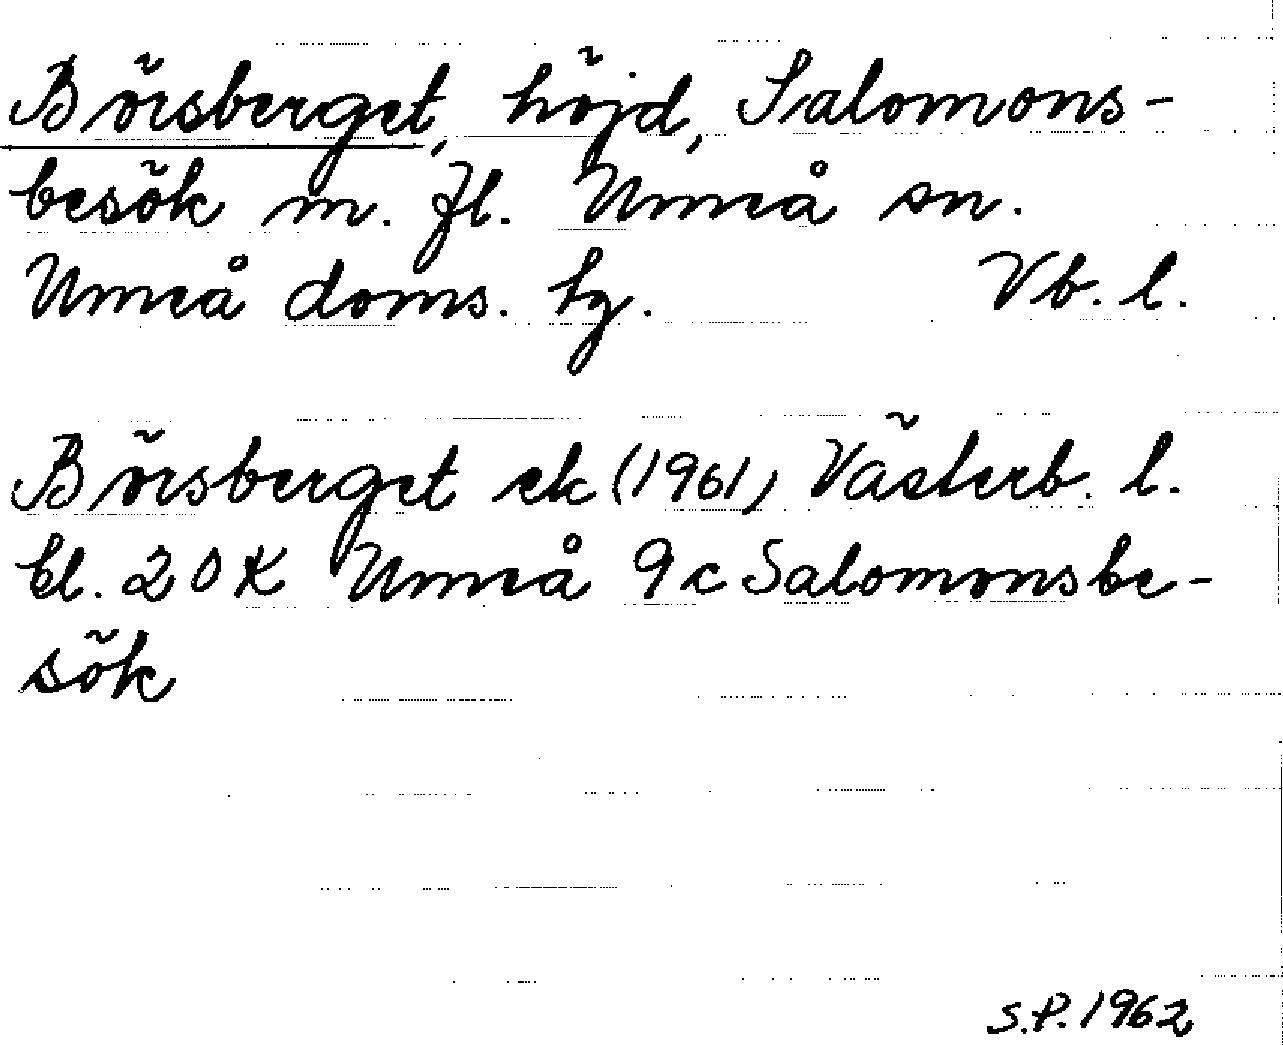 Börsberget, höjd, Salomons-
besök m. fl. Umeå sn.
Umeå doms. hg. Vb. l.
Börsberget ek (1961) Västerb. l.
bl. 20 K Umeå 9 c Salomonsbe-
sök
S.P. 1962